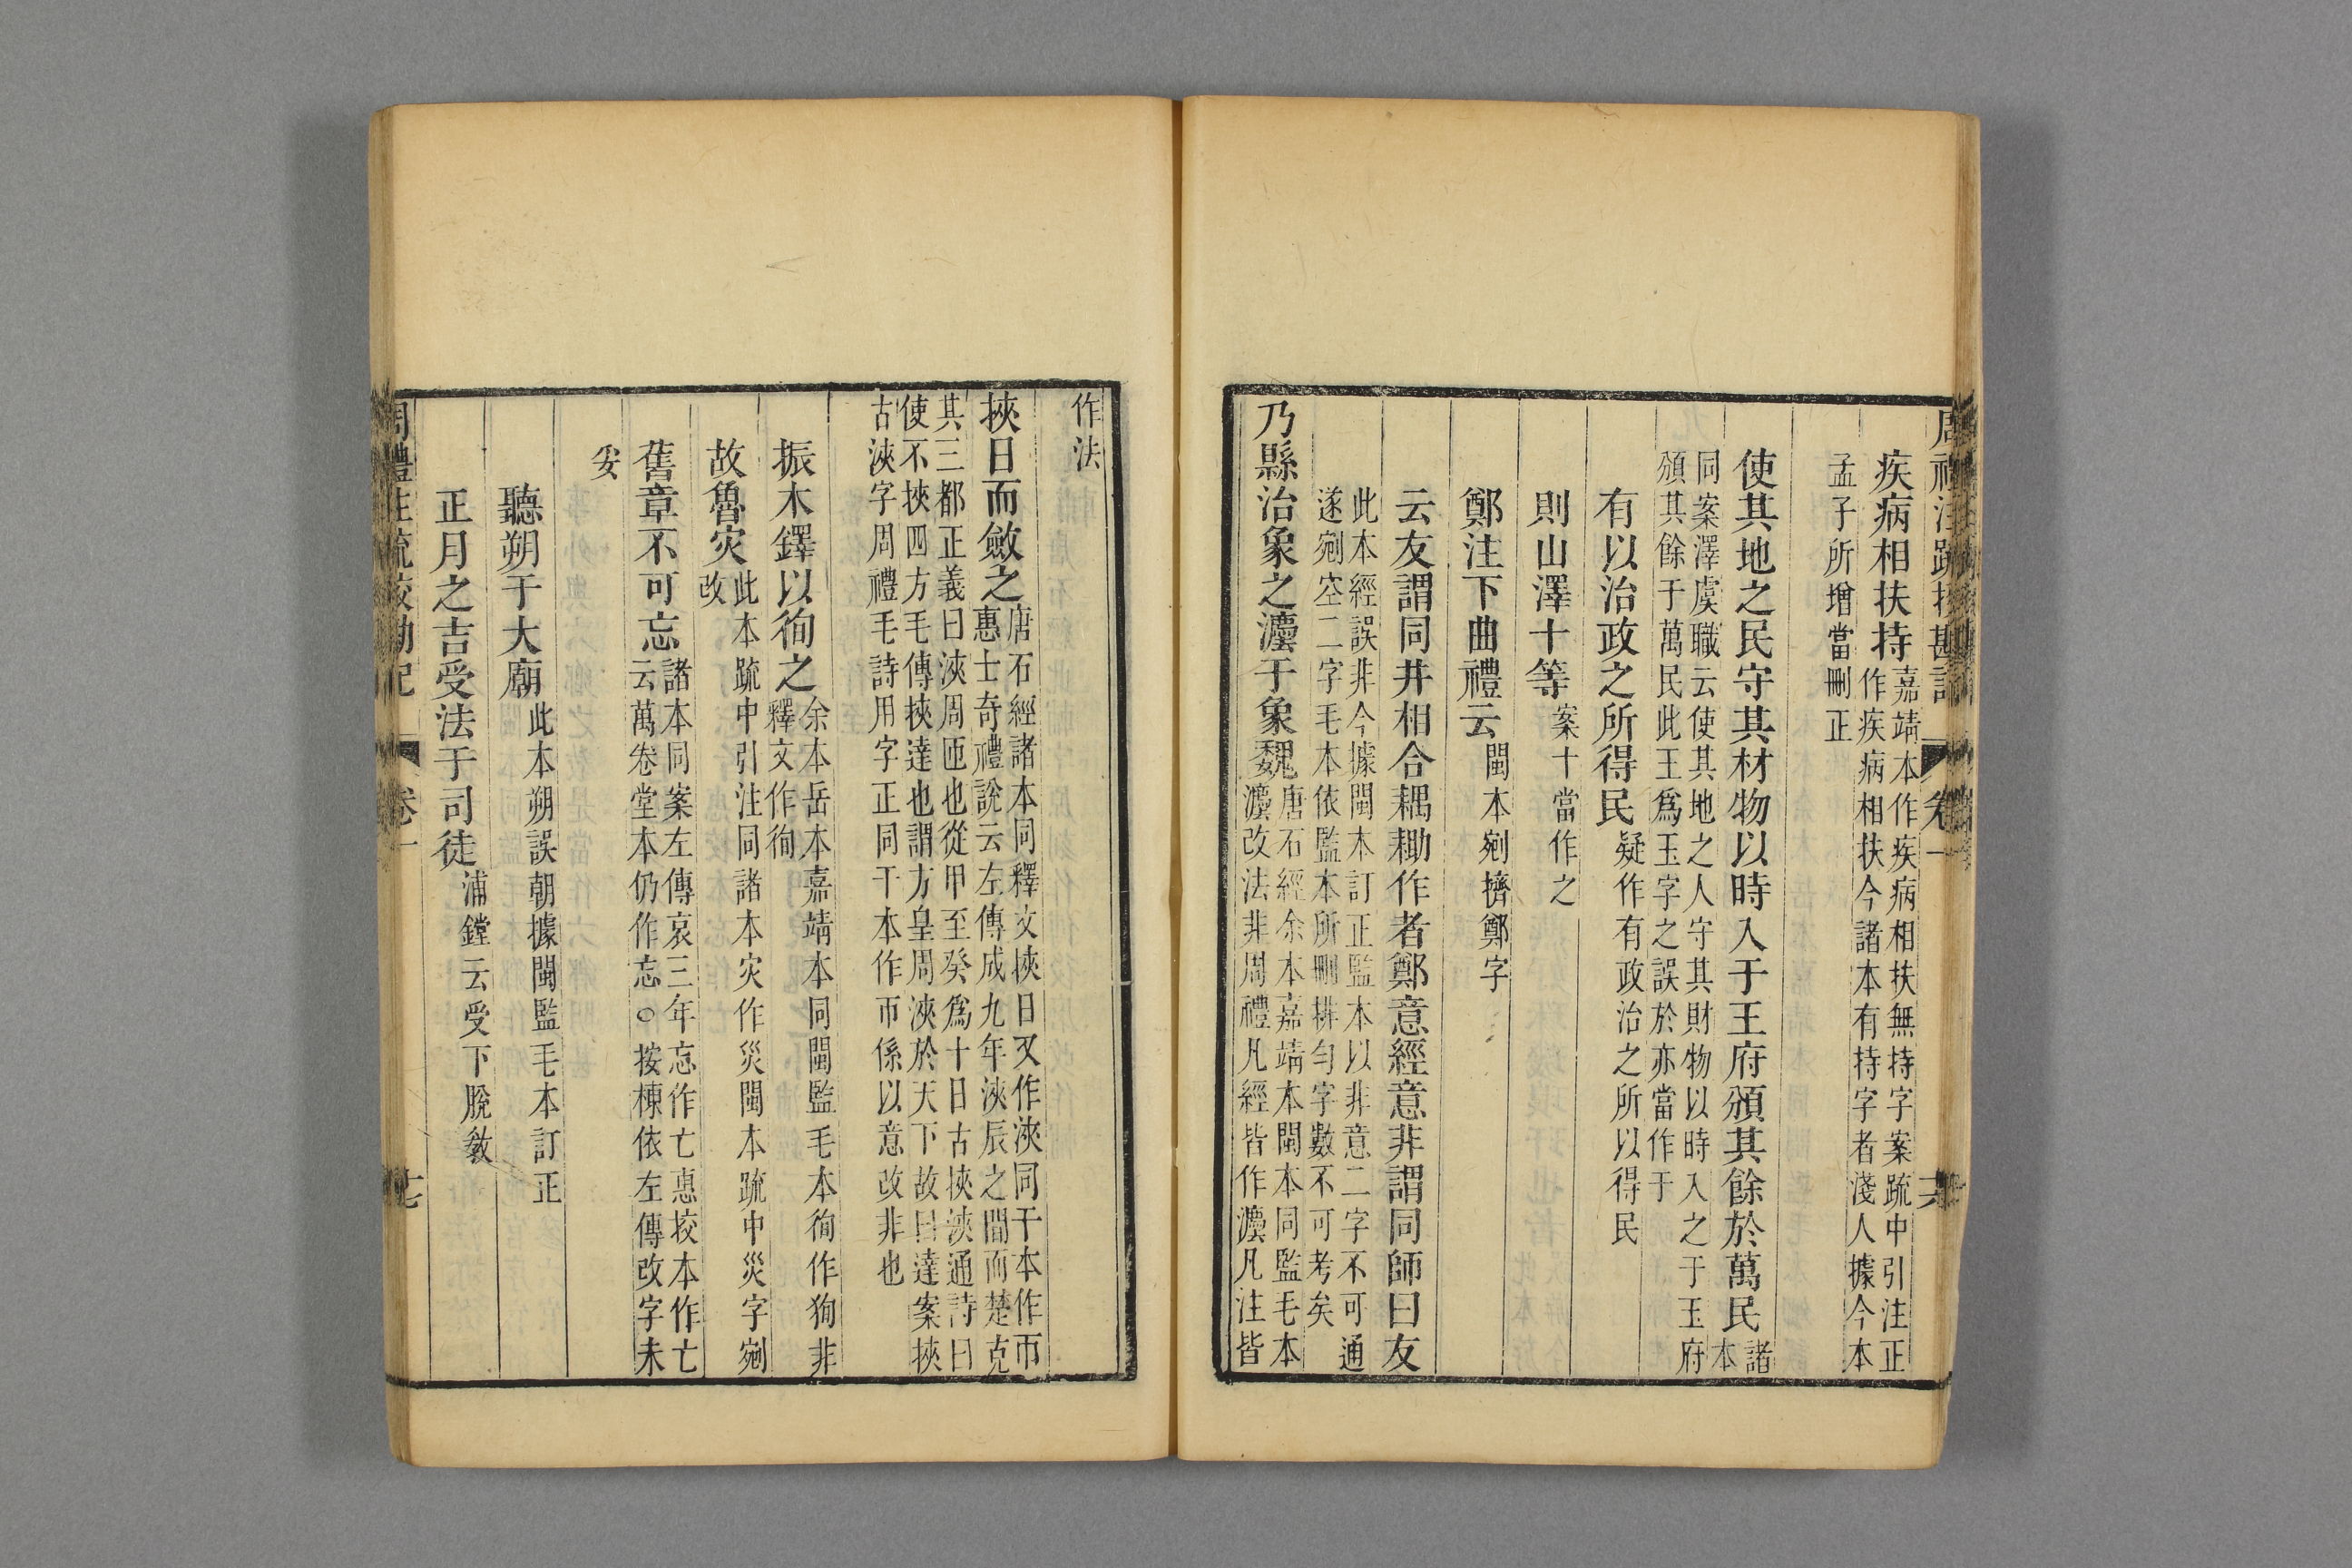 周禮注疏挍勘記 卷一 六
疾病相扶持嘉靖本作疾病相扶無持字案疏中引注正
作疾病相扶今諸本有持字者淺人據今本
孟子所增當刪正
使其地之民守其材物以時入于王府頒其餘於萬民諸
本
同案澤虞職云使其地之人守其財物以時入之于玉府
頒其餘于萬民此王爲玉字之誤於亦當作于
有以治政之所得民疑作有政治之所以得民
則山澤十等案十當作之
鄭注下曲禮云閩本剜擠鄭字
云友謂同井相合耦耡作者鄭意經意非謂同師曰友
此本經誤非今據閩本訂正監本以非意二字不可通
遂剜空二字毛本依監本所刪排勻字數不可考矣
乃縣治象之灋于象魏唐石經余本嘉靖本閩本同監毛本
灋改法非周禮凡經皆作灋凡注皆
作法
挾日而斂之唐石經諸本同釋文挾日又作浹同干本作帀
惠士奇禮說云左傳成九年浹辰之間而楚克
其三都正義曰浹周匝也從甲至癸爲十日古挾浹通詩曰
使不挾四方毛傳挾達也謂方皇周浹於天下故曰達案挾
古浹字周禮毛詩用字正同干本作帀係以意改非也
振木鐸以徇之余本岳本嘉靖本同閩監毛本徇作狥非
釋文作徇
故魯灾此本疏中引注同諸本灾作災閩本疏中災字剜
改
舊章不可忘諸本同案左傳哀三年忘作亡惠挍本作亡
云萬卷堂本仍作忘○按棟依左傳改字未
安
聽朔于大廟此本朔誤朝據閩監毛本訂正
正月之吉受法于司徒浦鏜云受下脫敎
周禮注疏挍勘記 卷一 七